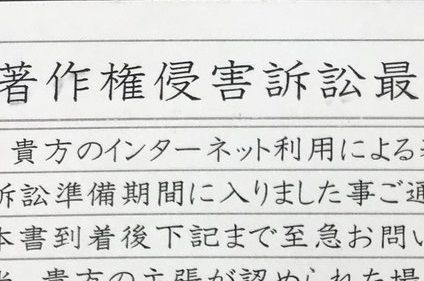 著作権侵害訴訟最
貴方のインターネット利用による
訴訟準備期間に入りました事ご通
本書到着後下記まで至急お問い
貴方の主張が認められた場